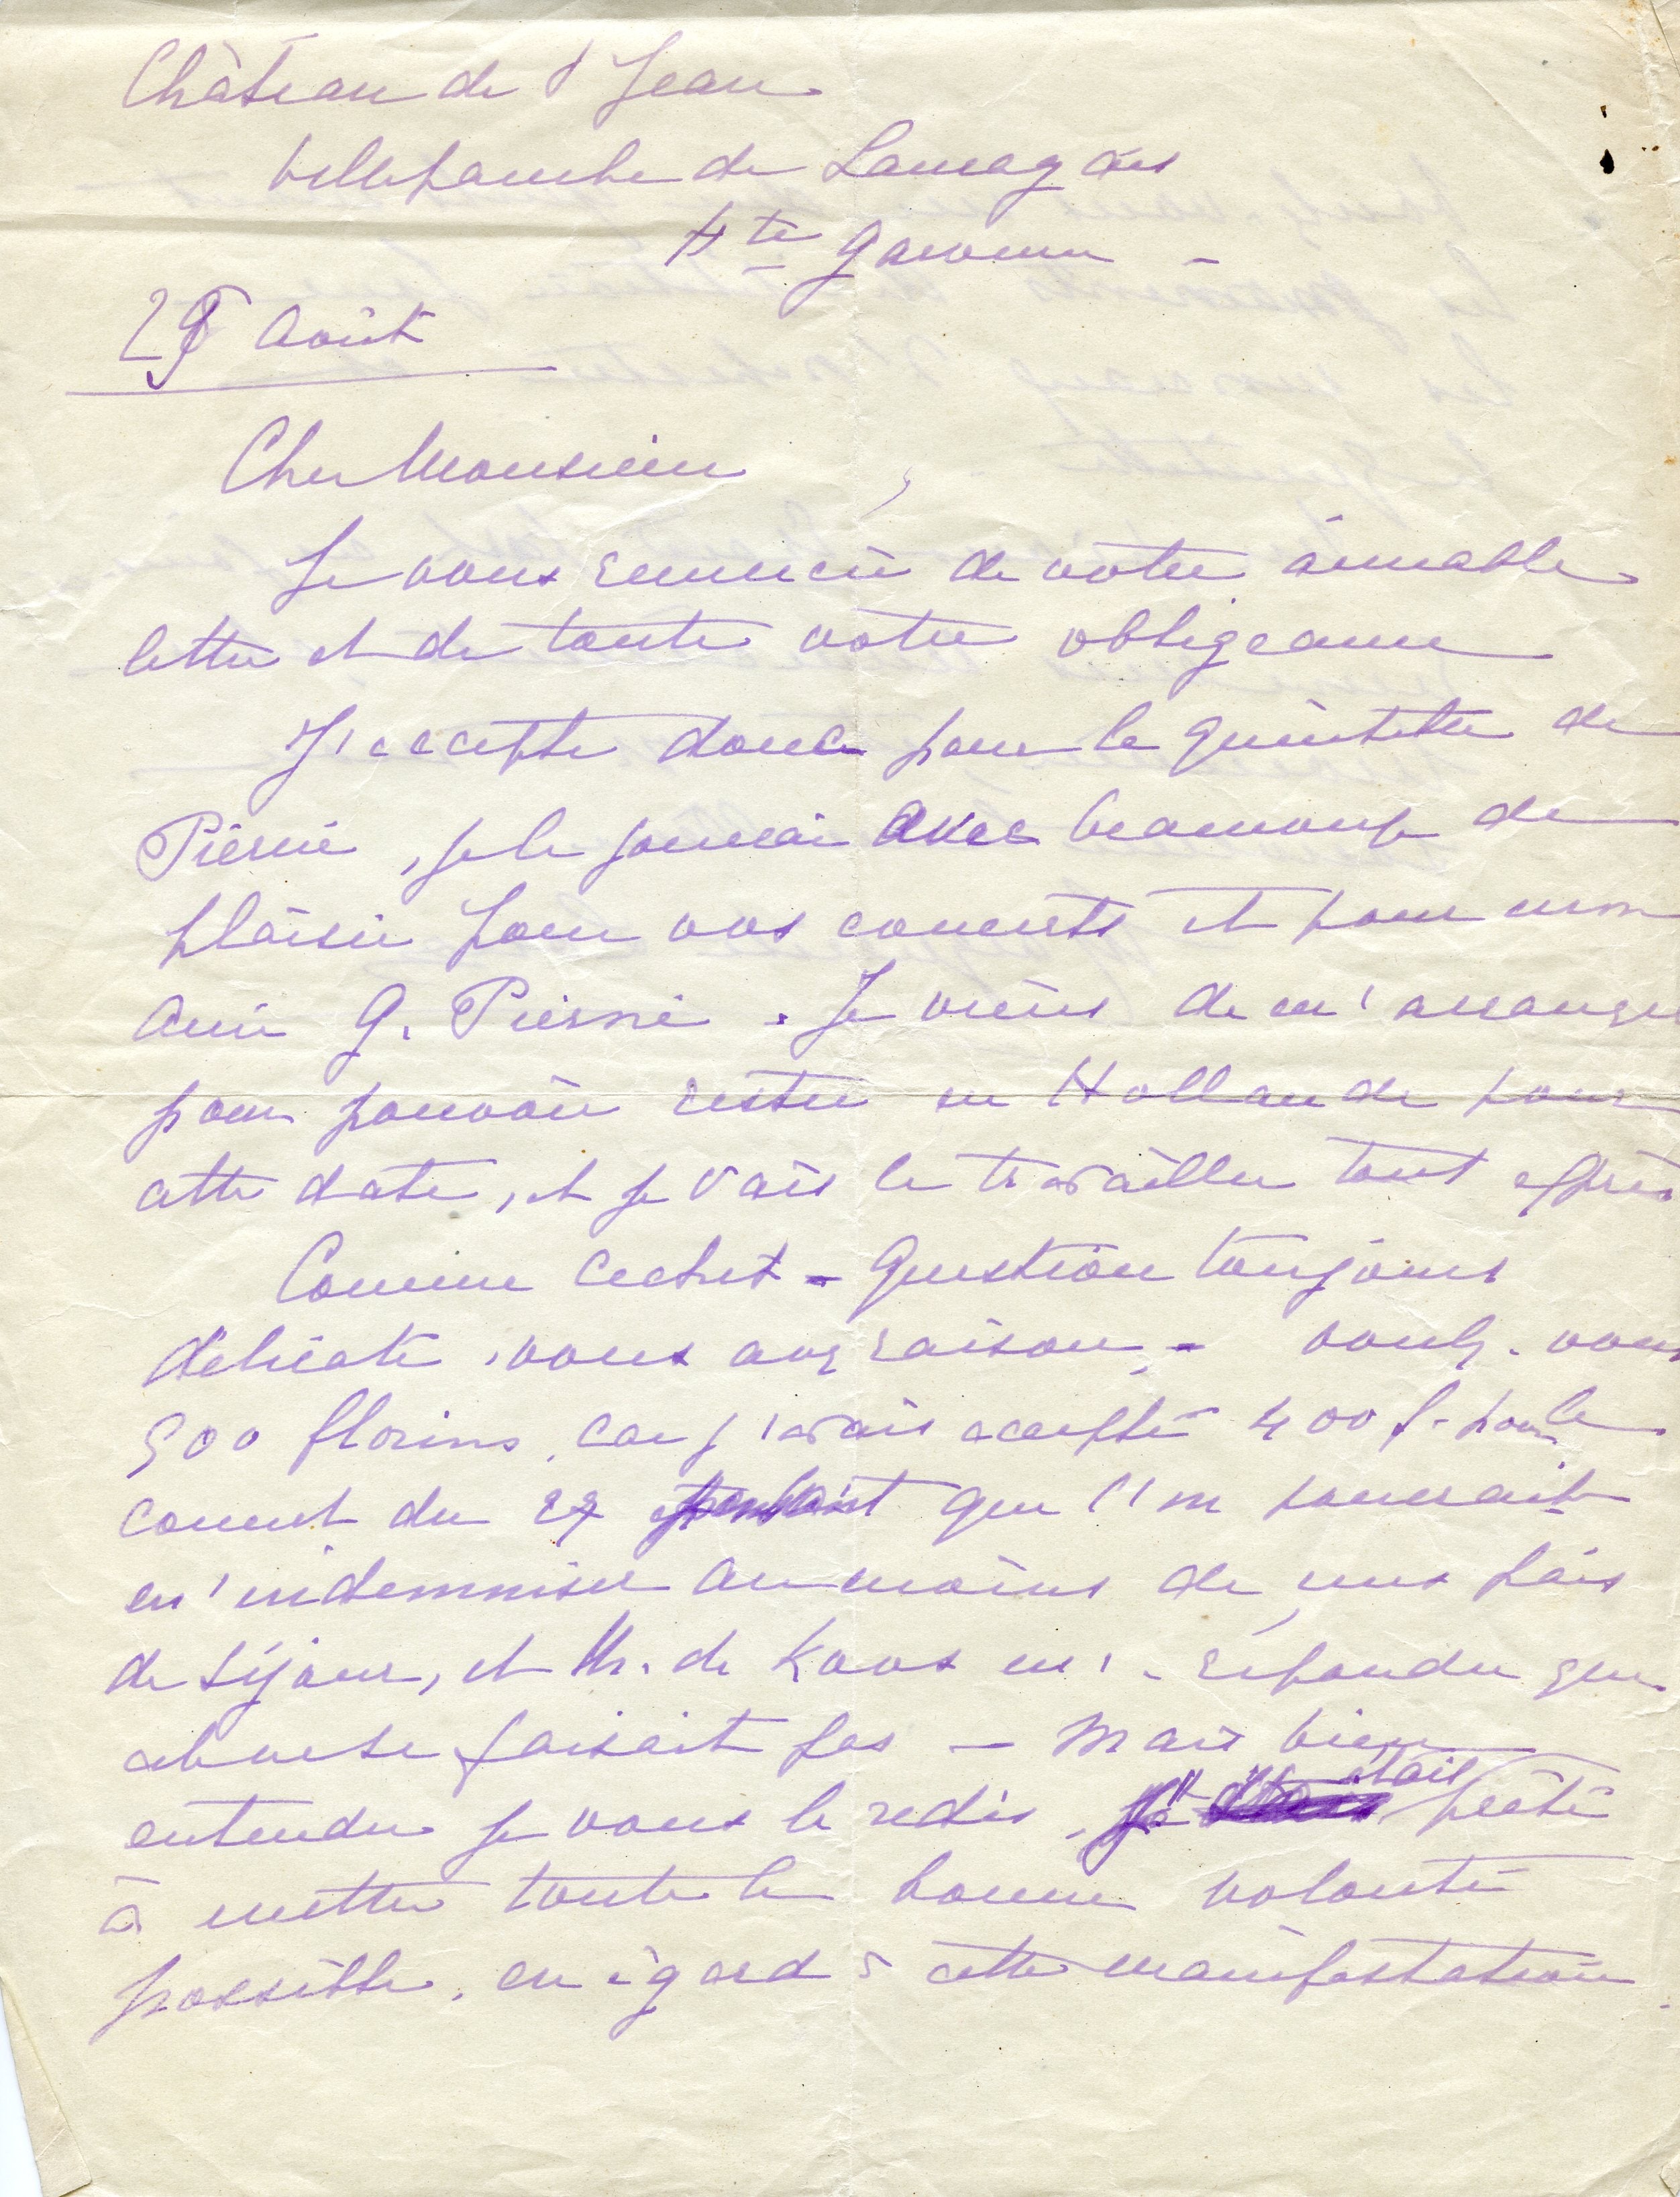 Château de St Jean
Villefranche de Lauragais
Hte Garonne -
29 Août
Cher Monsieur,
Je vous remercie de votre aimable
lettre et de toute votre obligeance
J'accepte donc pour le quintette de
Pierné, je le jouerai avec beaucoup de
plaisir pour vos concerts et pour mon
ami G. Pierné. Je viens de m'arranger
pour pouvoir rester en Hollande pour
cette date, et je vais le travailler tout exprès
Comme cachet - question toujours
délicate, vous avez raison, - voulez-vous
500 florins, car j'avais accepté 400 f. pour le
concert du 27 pensant que l'on pourrait
m'indemniser au moins de mes frais
de séjour, et Mr. de Koos m'a répondu que
cela ne se faisait pas - Mais bien
entendu je vous le redis, j'étais prête
à mettre toute la bonne volonté
possible, en égard à cette manifestation